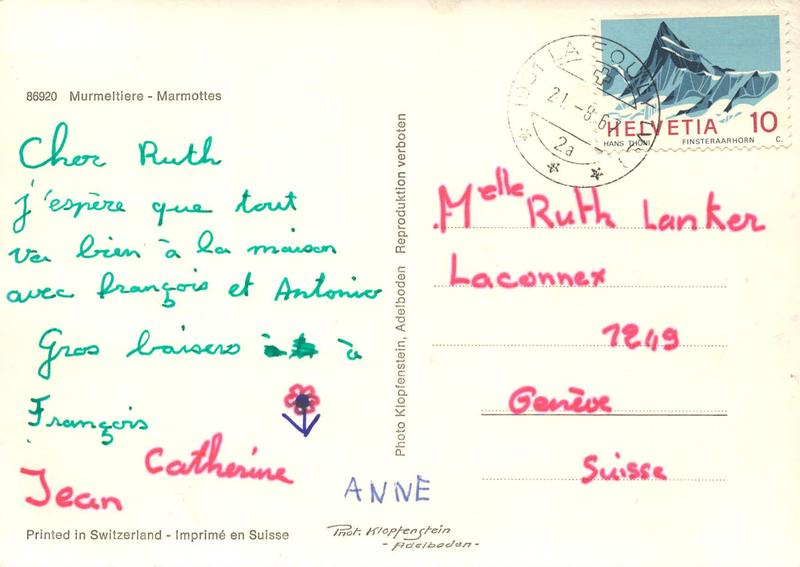 86920 Murmeltiere - Marmottes
Cher Ruth
j'espère que tout
va bien à la maison
avec françois et Antonio
Gros baisers à
François
Catherine
Jean
ANNE
Printed in Switzerland - Imprimé en Suisse
Phot. Klopfenstein
- Adelboden -
Photo Klopfenstein, Adelboden Reproduktion verboten
HELVETIA 10
HANS THÖNI FINSTERAARHORN C.
21.-8.67
2a
Melle Ruth Lanker
Laconnex
1249
Genève
Suisse